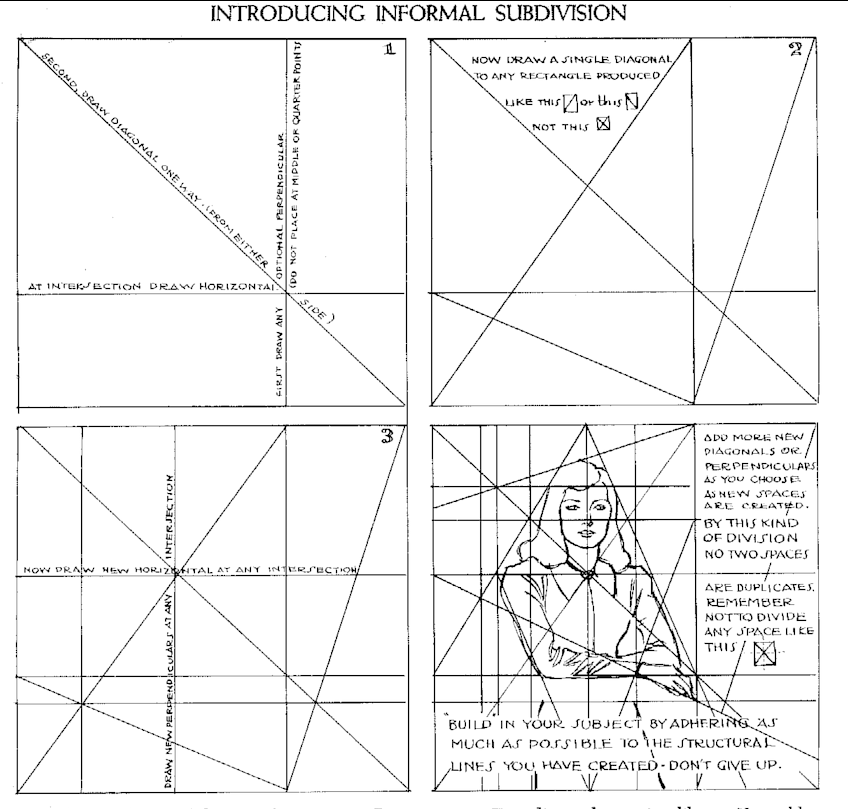 INTRODUCING INFORMAL SUBDIVISION
1
SECOND, DRAW DIAGONAL ONE WAY. (FROM EITHER
SIDE)
FIRST DRAW ANY
OPTIONAL PERPENDICULAR
(DO NOT PLACE AT MIDDLE OR QUARTER POINTS
AT INTERSECTION DRAW HORIZONTAL
2
NOW DRAW A SINGLE DIAGONAL
TO ANY RECTANGLE PRODUCED
LIKE THIS or this
NOT THIS
3
NOW DRAW NEW HORIZONTAL AT ANY INTERSECTION
DRAW NEW PERPENDICULARS AT ANY INTERSECTION
ADD MORE NEW
DIAGONALS OR
PERPENDICULARS
AS YOU CHOOSE
AS NEW SPACES
ARE CREATED.
BY THIS KIND
OF DIVISION
NO TWO SPACES
ARE DUPLICATES.
REMEMBER
NOT TO DIVIDE
ANY SPACE LIKE
THIS
"BUILD" IN YOUR SUBJECT BY ADHERING AS
MUCH AS POSSIBLE TO THE STRUCTURAL
LINES YOU HAVE CREATED - DON'T GIVE UP.